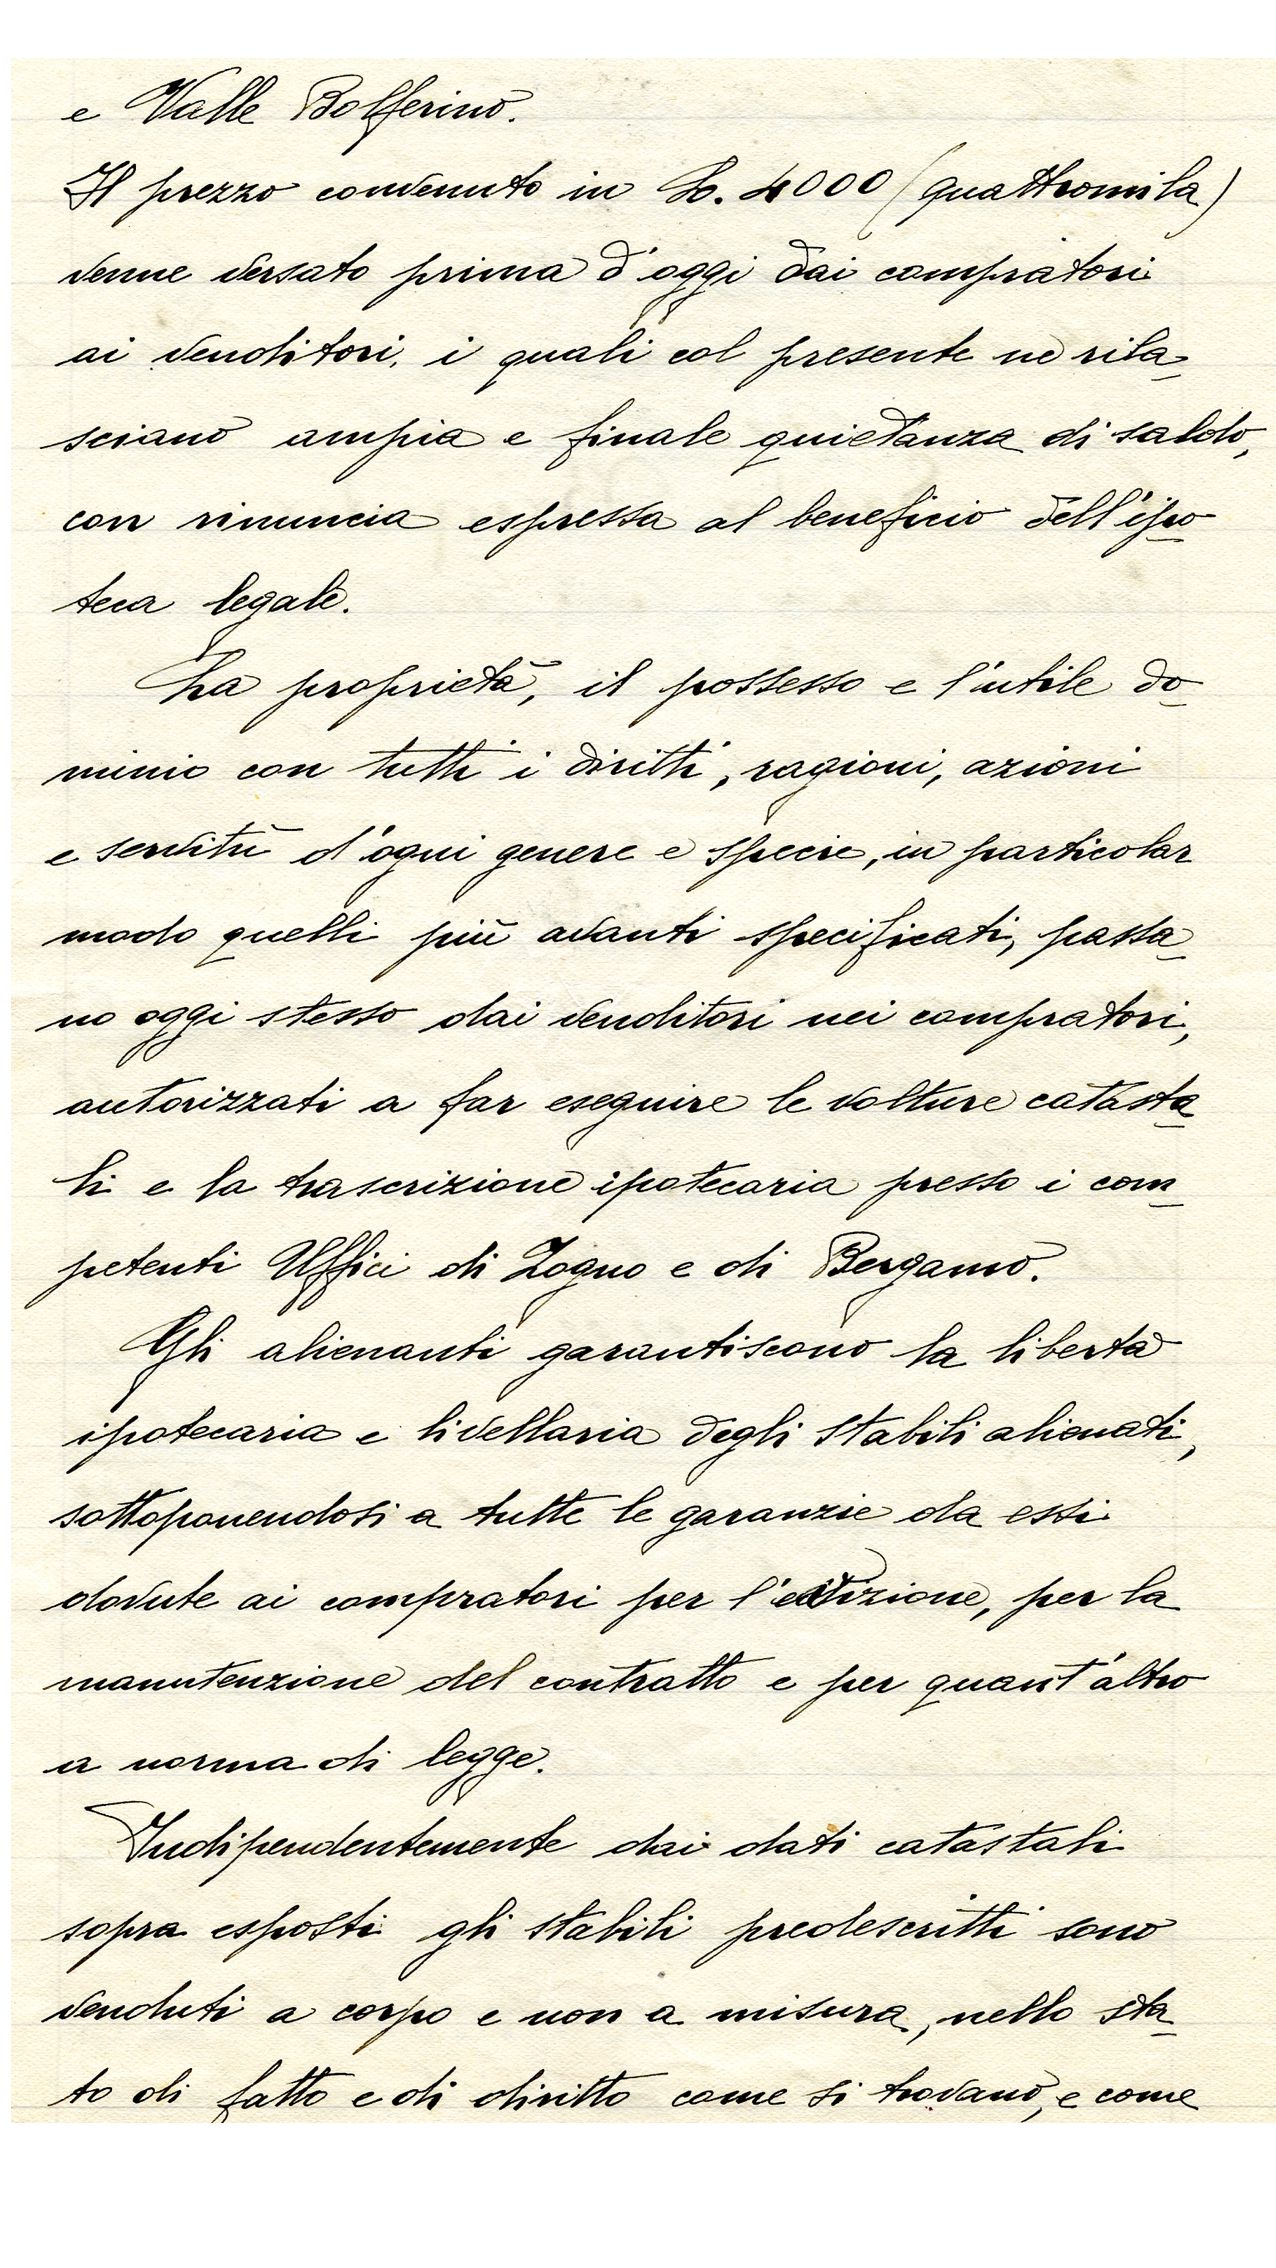 e Valle Bolferino.
Il prezzo convenuto in L. 4000 (quattromila)
venne versato prima d'oggi dai compratori
ai venditori, i quali col presente ne rila-
sciano ampia e finale quietanza di saldo,
con rinuncia espressa al beneficio dell'ipo-
teca legale.
La proprietà, il possesso e l'utile do-
minio con tutti i diritti, ragioni, azioni
e servitù d'ogni genere e specie, in particolar
modo quelli più avanti specificati, passa-
no oggi stesso dai venditori nei compratori,
autorizzati a far eseguire le volture catasta-
li e la trascrizione ipotecaria presso i com-
petenti Uffici di Zogno e di Bergamo.
Gli alienanti garantiscono la libertà
ipotecaria e livellaria degli stabili alienati,
sottoponendosi a tutte le garanzie da essi
dovute ai compratori per l'evizione, per la
manutenzione del contratto e per quant'altro
a norma di legge.
Indipendentemente dai dati catastali
sopra esposti gli stabili predescritti sono
venduti a corpo e non a misura, nello sta-
to di fatto e di diritto come si trovano, e come